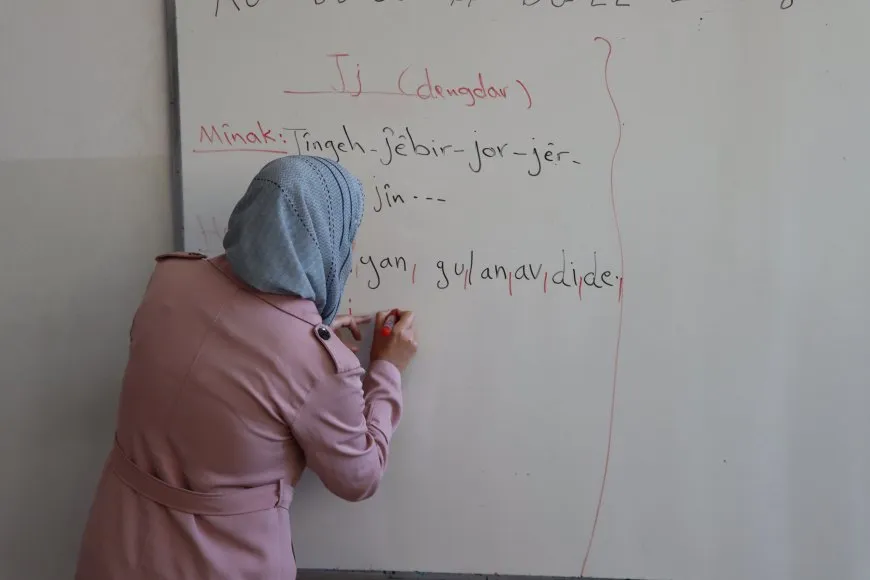 Jj (dengdar)
Mînak: Jîngeh - jêbir - jor - jêr -
jîn ---
yan, gu,lan,av,di,de.,